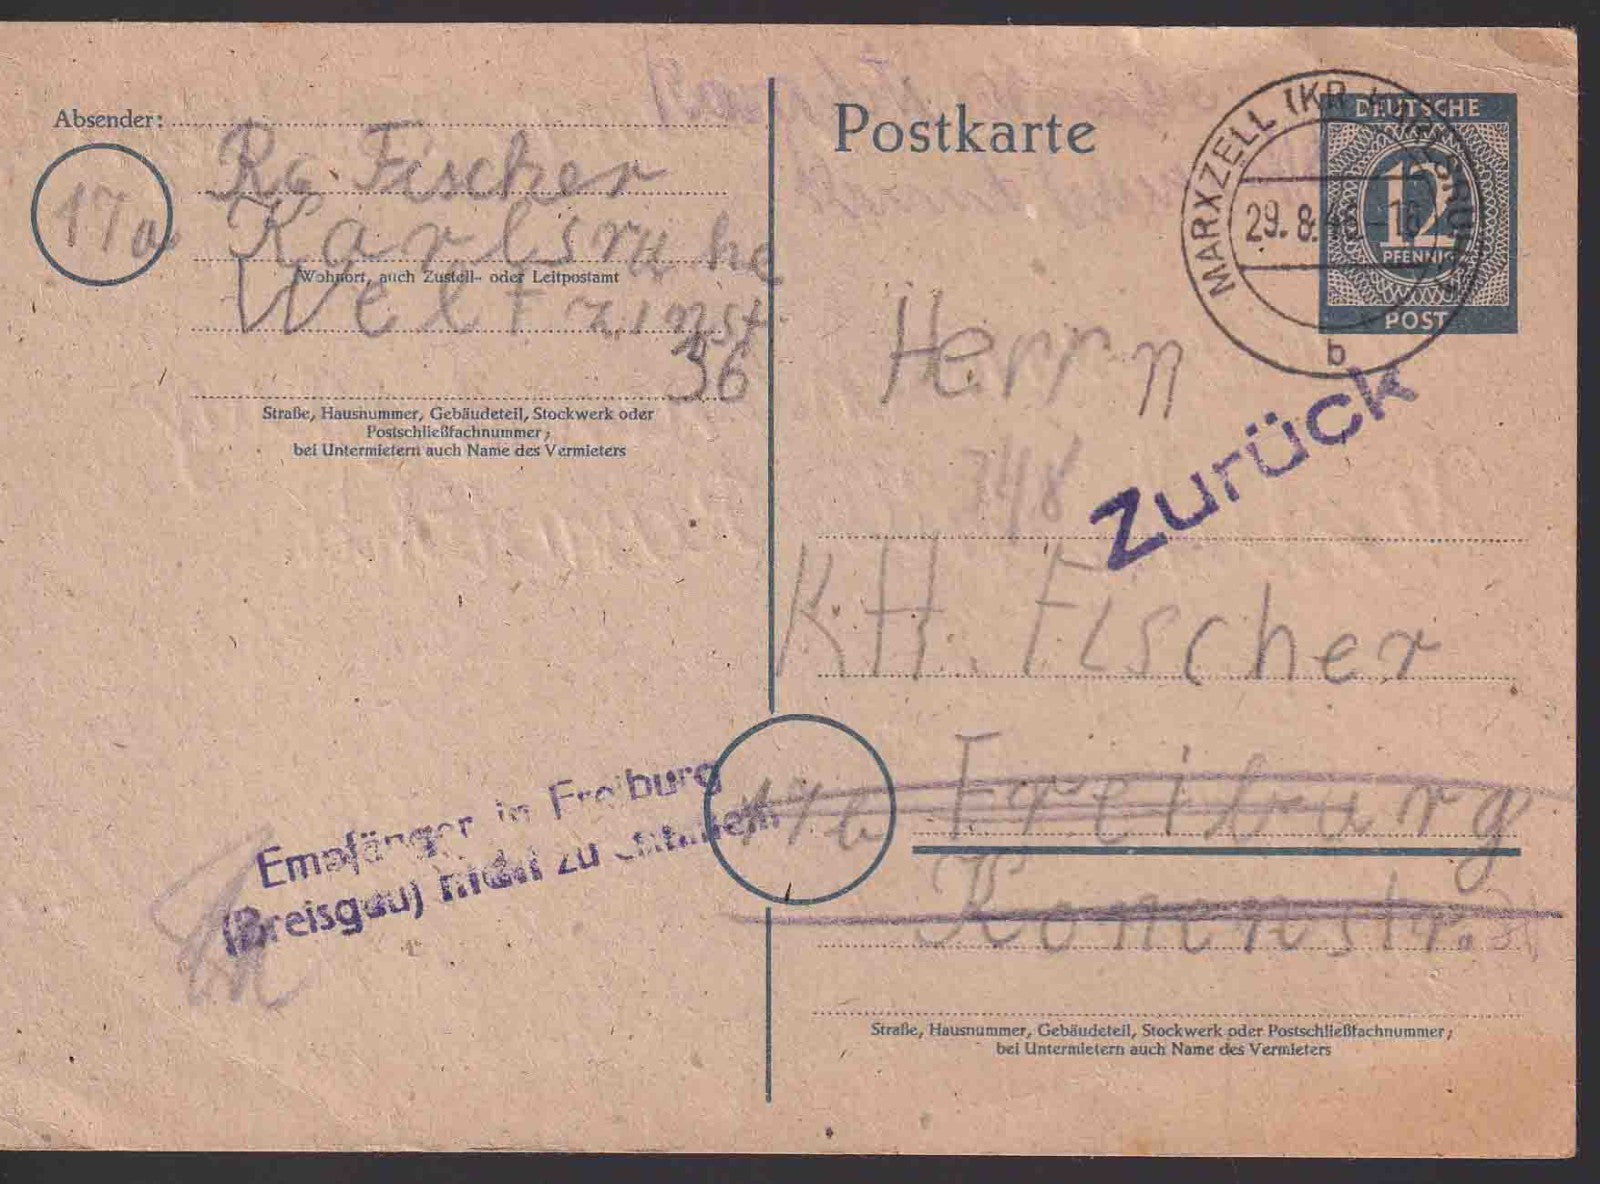 Absender:
17a
Rg. Fischer
Karlsruhe
Wohnort, auch Zustell- oder Leitpostamt
Weltzinst.
36
Straße, Hausnummer, Gebäudeteil, Stockwerk oder
Postschließfachnummer;
bei Untermietern auch Name des Vermieters
Empfänger in Freiburg
(Breisgau) nicht zu
Postkarte
MARXZELL (KR.
29. 8.
b
DEUTSCHE
12
PFENNIG
POST
Zurück
Herrn
348
K.H. Fischer
17b Freiburg
Straße, Hausnummer, Gebäudeteil, Stockwerk oder Postschließfachnummer;
bei Untermietern auch Name des Vermieters